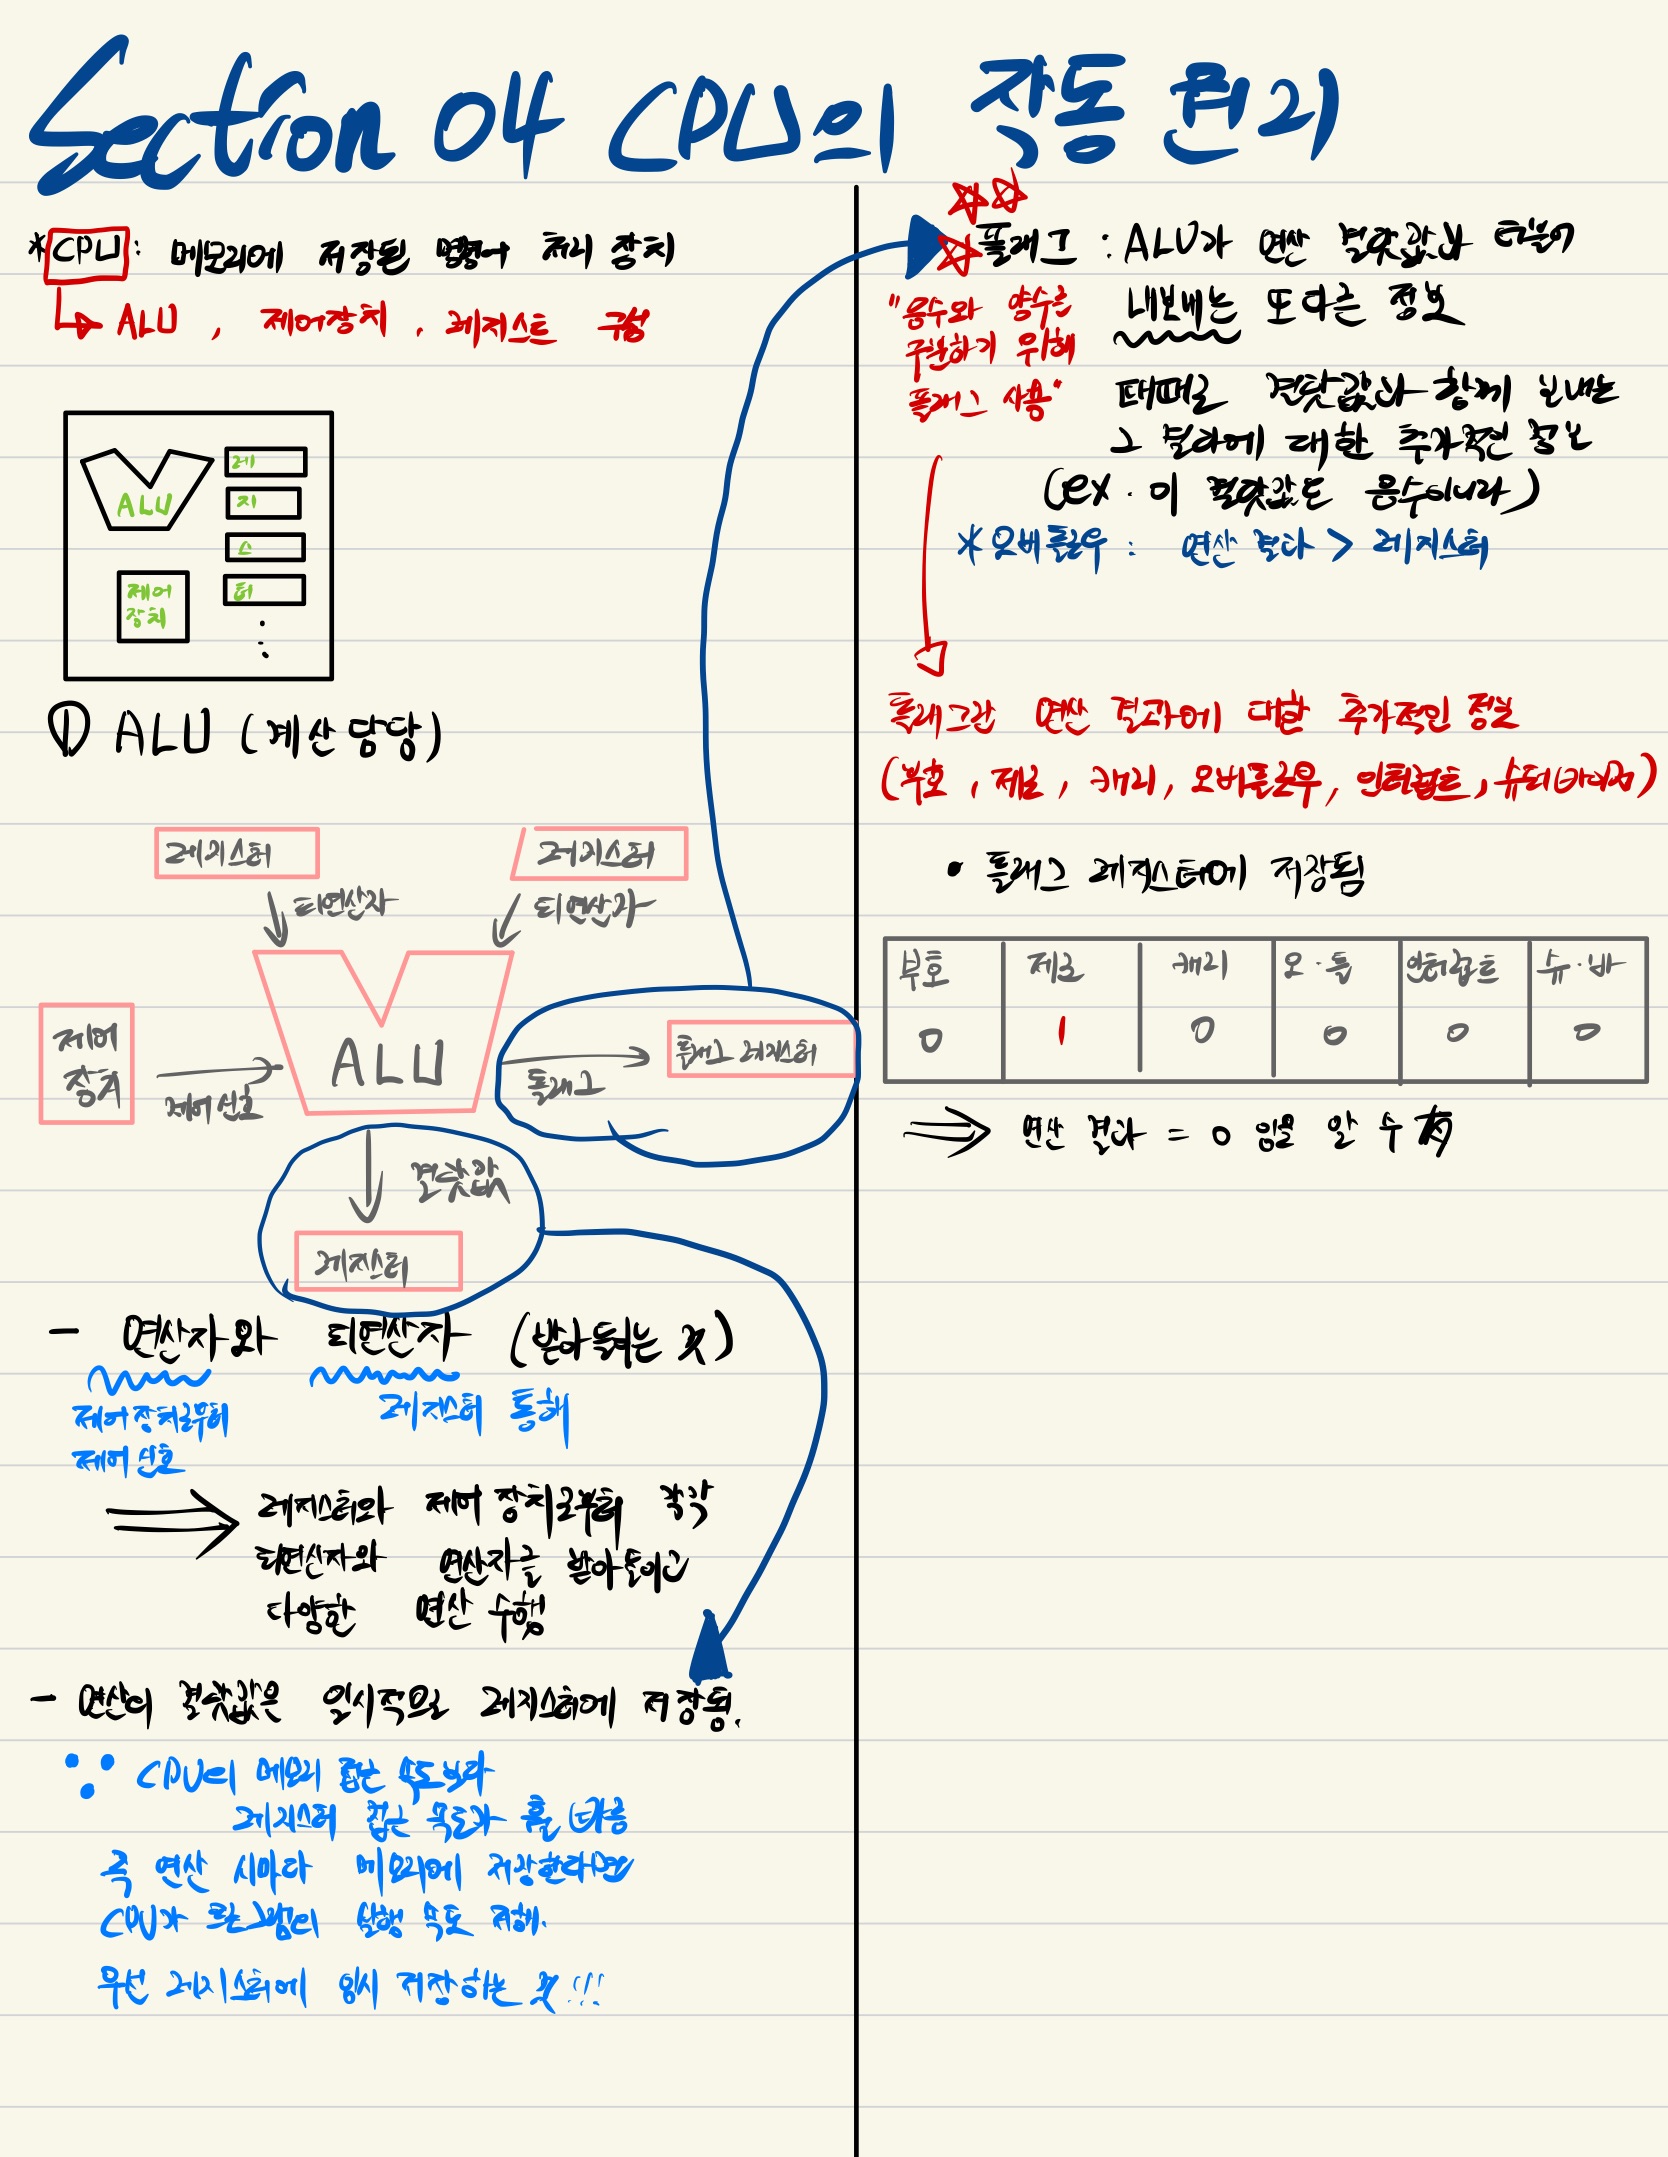 Section 04 CPU의 작동 원리
*CPU: 메모리에 저장된 명령어 처리 장치
ALU, 제어장치, 레지스트 구성
ALU
레
지
스
터
제어
장치
① ALU (계산 담당)
레지스터
레지스터
피연산자
피연산자
제어
장치
제어 신호
ALU
플래그
플래그 레지스터
결괏값
레지스터
- 연산자와 피연산자 (받아들이는 것)
제어장치로부터
제어 신호
레지스터 통해
레지스터와 제어 장치로부터 각각
피연산자와 연산자를 받아들이고
다양한 연산 수행
- 연산의 결괏값은 일시적으로 레지스터에 저장됨.
∵ CPU의 메모리 접근 속도보다
레지스터 접근 속도가 훨씬 빠름
즉 연산 시마다 메모리에 저장한다면
CPU가 프로그램의 실행 속도 저해.
우선 레지스터에 임시 저장하는 것!!!
플래그 : ALU가 연산 결괏값과 더불어
내보내는 또다른 정보
"음수와 양수를
구분하기 위해
플래그 사용"
때때로 결괏값과 함께 보내는
그 결과에 대한 추가적인 정보
(ex. 이 결괏값은 음수이니라)
*오버플로우 : 연산 결과 > 레지스터
플래그란 연산 결과에 대한 추가적인 정보
(부호, 제로, 캐리, 오버플로우, 인터럽트, 슈퍼바이저)
• 플래그 레지스터에 저장됨
부호 제로 캐리 오·플 인터럽트 슈·바
0 1 0 0 0 0
⇒ 연산 결과 = 0 임을 알 수 有